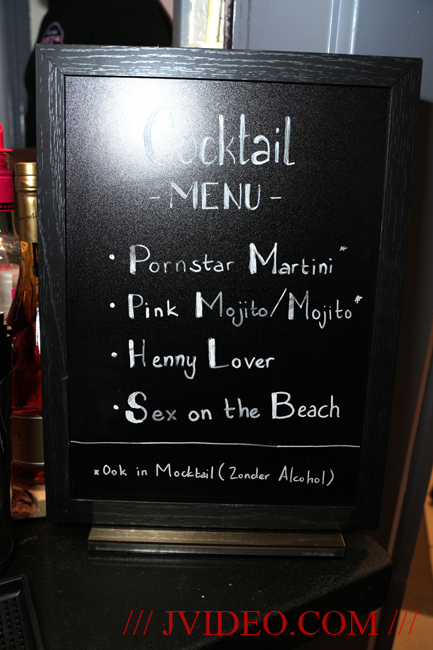 Cocktail
- MENU -
· Pornstar Martini*
· Pink Mojito/Mojito*
· Henny Lover
· Sex on the Beach
*Ook in Mocktail (Zonder Alcohol)
/// JVIDEO.COM ///